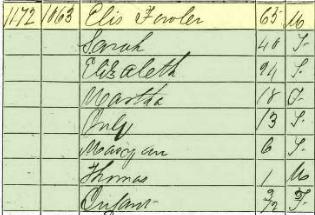 1172 1063 Elis Fowler 65 M
Sarah 40 F
Elizabeth 24 F
Martha 18 F
July 13 F
Maryan 6 F
Thomas 1 M
Infant 2/12 F